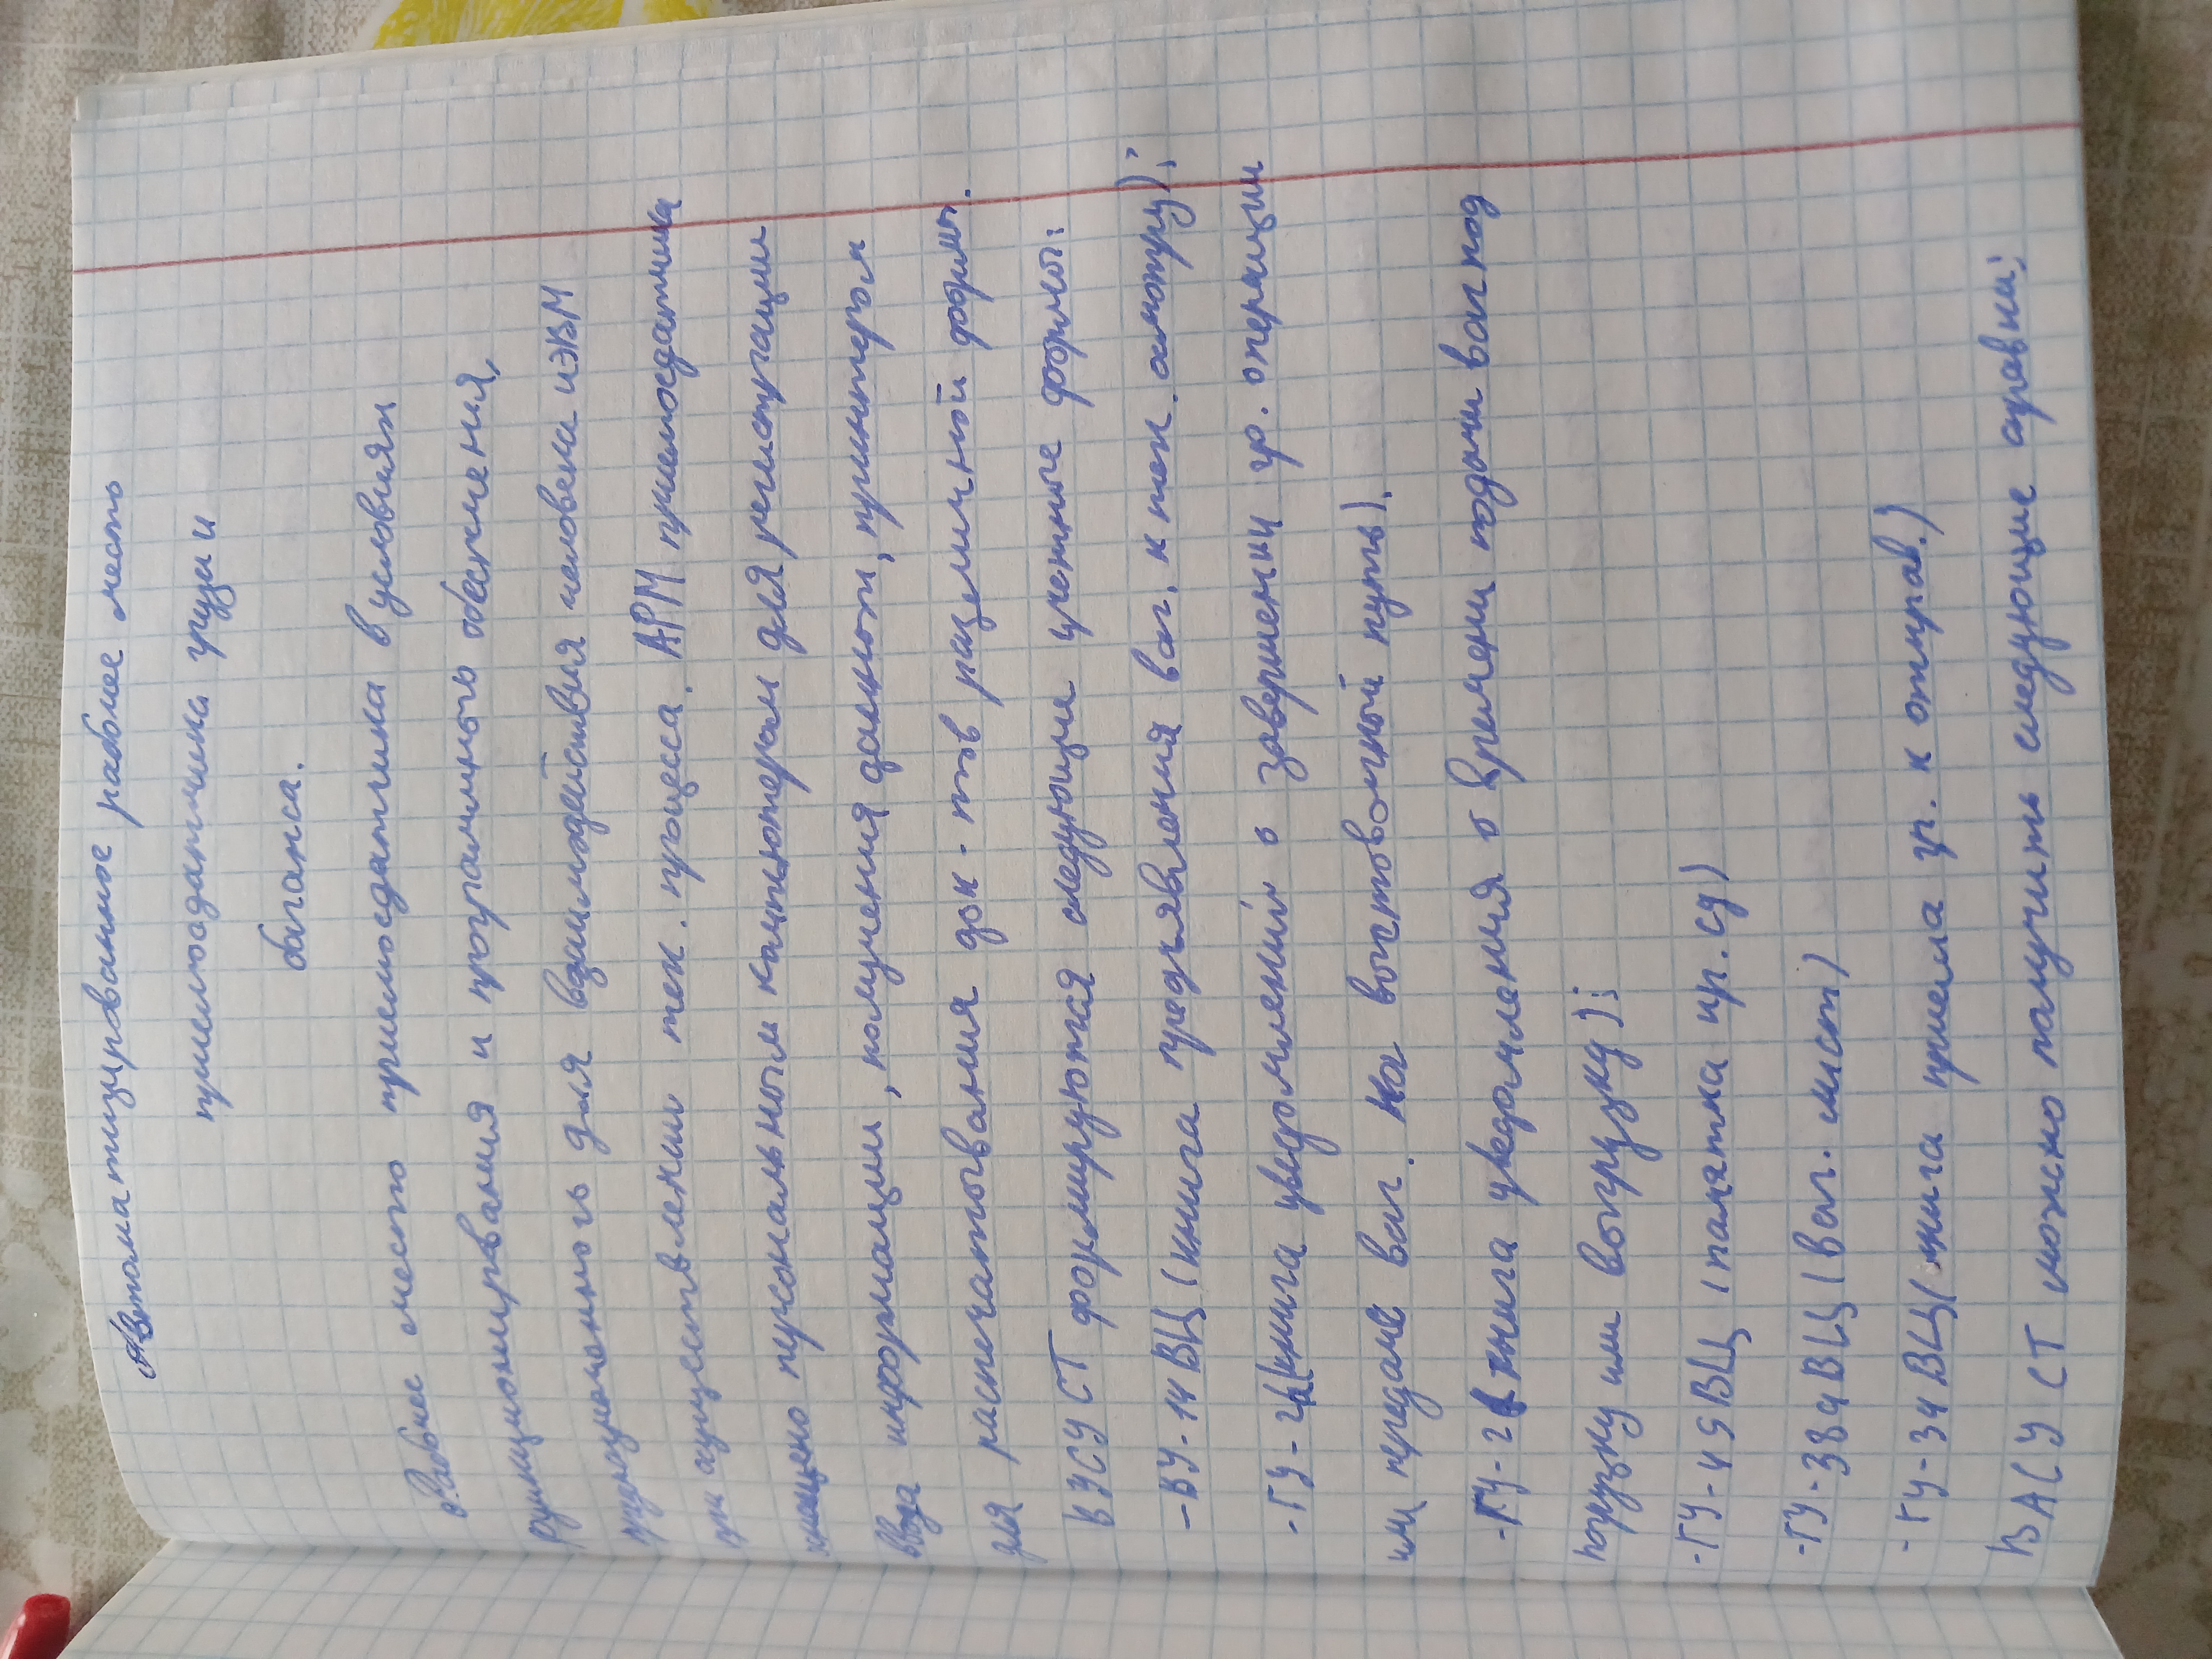 Автоматизированное рабочее место
приемосдатчика груза и
багажа.
Рабочее место приемосдатчика в условиях
функционирования и программного обеспечения,
предназначенного для взаимодействия человека и ЭВМ
при осуществлении тех. процесса. АРМ приемосдатчика
оснащено персональным компьютером для регистрации
ввода информации, получения данных, принтером
для распечатывания док-тов различной формы.
В УСУСТ формируются следующие учетные формы:
-ВУ-14 ВЦ (книга предъявления ваг. к тех. осмотру);
-ГУ-2 (книга уведомлений о завершении гр. операции
или передаче ваг. на выставочной путь).
-ГУ-2в книга уведомления о времени подачи ваг под
погрузку или выгрузку);
-ГУ-45ВЦ (памятка пр.сд)
-ГУ-38аВЦ (Ваг. лист)
-ГУ-34 ВЦ (книга приема гр. к отправ.)
В АСУ СТ можно получить следующие справки: